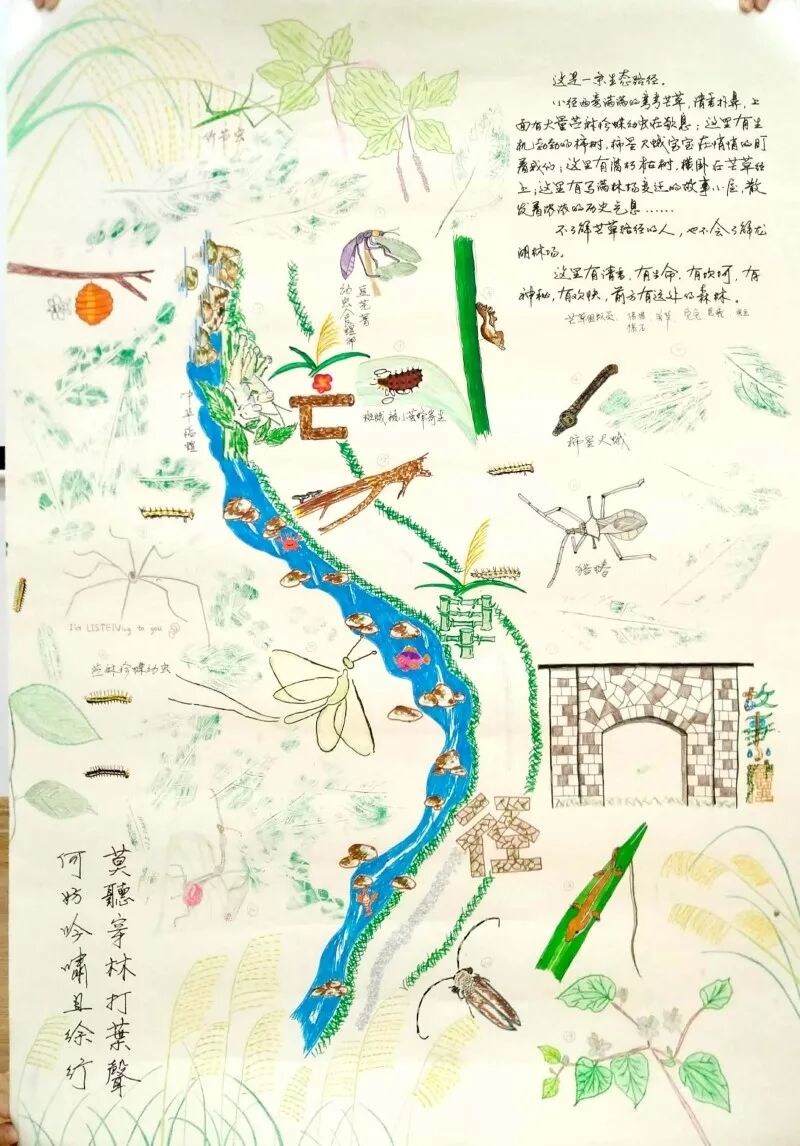 这是一条生态路径。
小径两旁满满的弯弯芒草,清香扑鼻,上
面有大量苎麻珍蝶幼虫在歇息;这里有生
机勃勃的柿树,柿星尺蛾宝宝在悄悄的盯
着我们;这里有腐朽枯树,横卧在芒草径
上;这里有写满林场变迁的故事小屋,散
发着浓浓的历史气息……
不了解芒草路径的人,也不会了解龙
湖林场。
这里有清香,有生命,有坎坷,有
神秘,有欢快,前方有这片的森林。
竹节虫
豆芫菁
幼虫食蝗卵
芒
斑蛾被小茧蜂寄生
柿星尺蛾
猎蝽
草
I'm LISTENing to you
苎麻珍蝶幼虫
故事
径
莫聽穿林打葉聲
何妨吟嘯且徐行